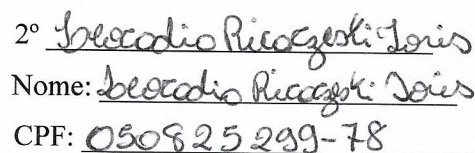 2º Leocadio Ricoczeski Joris
Nome: Leocadio Ricoczeski Joris
CPF: 050825299-78